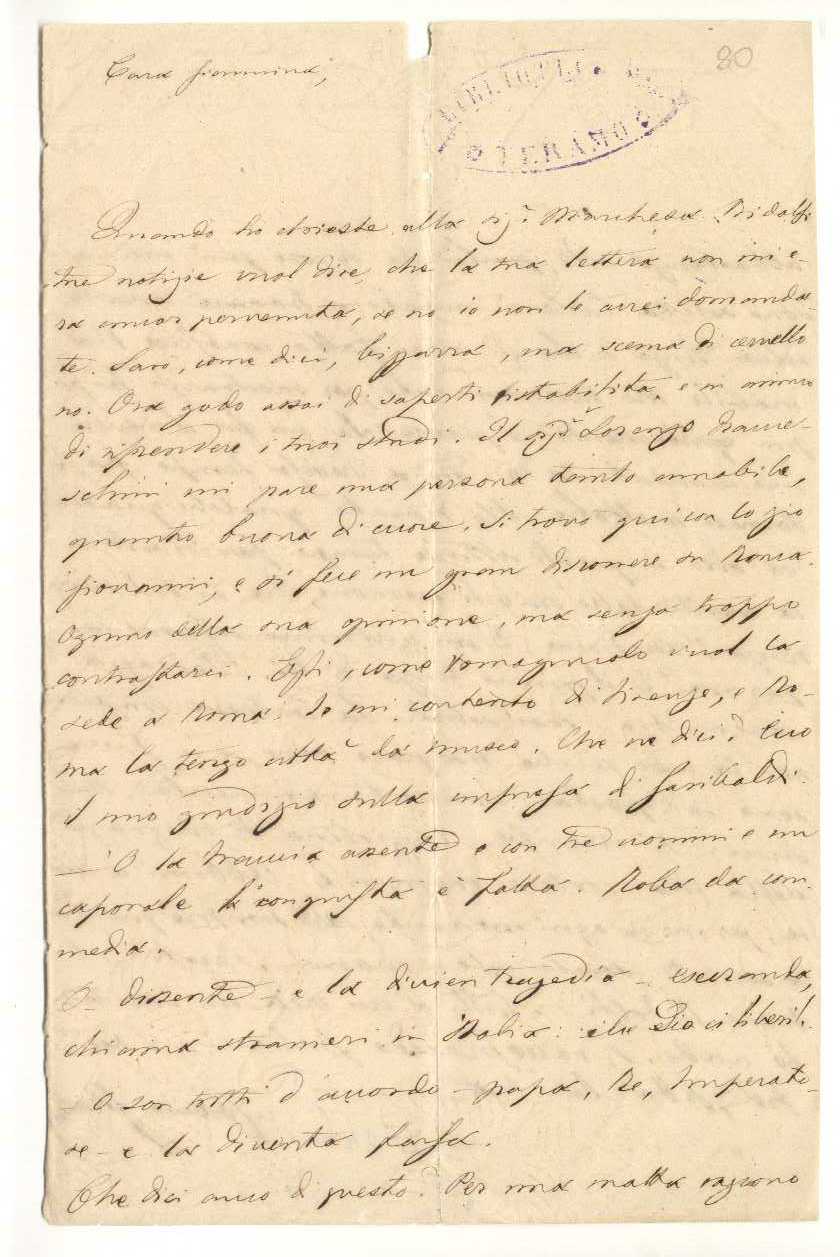 80
Cara Giannina,
BIBLIOTECA
TERAMO
Quando ho chieste alla sig.ª Marchesa Ridolfi
tue notizie vuol dire, che la tua lettera non mi e-
ra ancor pervenuta, se no io non le avrei domanda-
te. Sarò, come dici, bizzarra, ma scema di cervello
no. Ora godo assai di saperti ristabilita, e in animo
di riprendere i tuoi studi. Il sig.r Lorenzo
mi pare una persona tanto amabile,
quanto buona di cuore. Si trovò qui con lo zio
Giovanni, e si fece un gran discorrere su Roma.
Ognuno della sua opinione, ma senza troppo
contrastarci. Egli, come romagnuolo vuol la
sede a Roma. Io mi contento di Firenze, e Ro-
ma la tengo città da museo. Che ne dici? Ecco
il mio giudizio sulla impresa di Garibaldi.
— O la Francia assente e con tre uomini e un
caporale la conquista è fatta. Roba da com-
media.
O - dissente - e la divien tragedia - esecranda,
chiama stranieri in Italia: che Dio ci liberi!
- O son tutti d'accordo - papa, Re, Imperato-
re - e la diventa farsa.
Che dici anco di questo? Per una matta ragiono